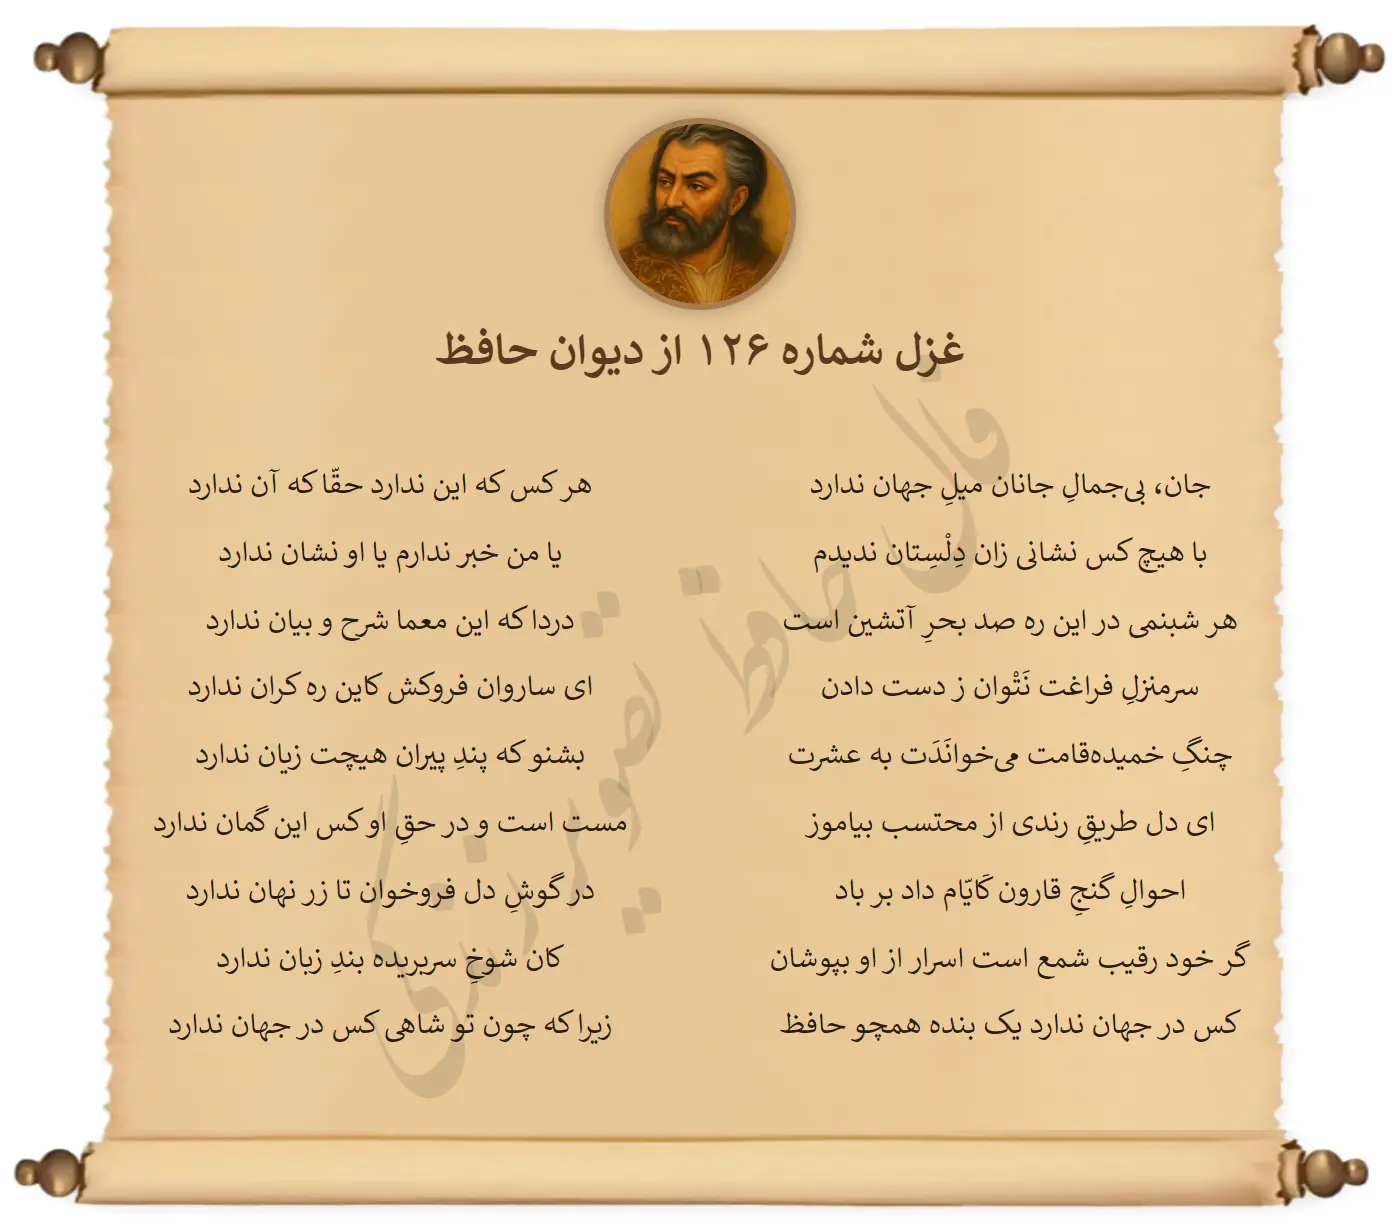 غزل شماره ۱۲۶ از دیوان حافظ
جان، بی‌جمالِ جانان میلِ جهان ندارد
هر کس که این ندارد حقّا که آن ندارد
با هیچ کس نشانی زان دِلْسِتان ندیدم
یا من خبر ندارم یا او نشان ندارد
هر شبنمی در این ره صد بحرِ آتشین است
دردا که این معما شرح و بیان ندارد
سرمنزلِ فراغت نَتْوان ز دست دادن
ای ساروان فروکش کاین ره کران ندارد
چنگِ خمیده‌قامت می‌خوانَدَت به عشرت
بشنو که پندِ پیران هیچت زیان ندارد
ای دل طریقِ رندی از محتسب بیاموز
مست است و در حقِ او کس این گمان ندارد
احوالِ گنجِ قارون کَایّام داد بر باد
در گوشِ دل فروخوان تا زر نهان ندارد
گر خود رقیب شمع است اسرار از او بپوشان
کان شوخِ سربریده بندِ زبان ندارد
کس در جهان ندارد یک بنده همچو حافظ
زیرا که چون تو شاهی کس در جهان ندارد
فال حافظ تصویر زندگی